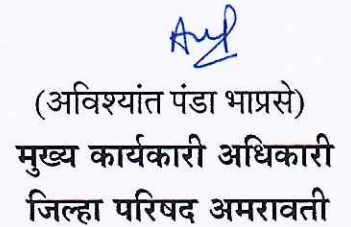 (अविश्यांत पंडा भाप्रसे)
मुख्य कार्यकारी अधिकारी
जिल्हा परिषद अमरावती